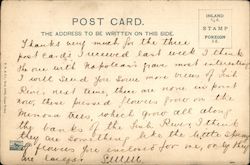 POST CARD.
THE ADDRESS TO BE WRITTEN ON THIS SIDE.
INLAND
STAMP
FOREIGN
Thanks very much for the three
post cards I received last week I think
the one with Napolean's grave most interesting
I will send you some more views of Fish
River, next time, there are none in print
now, these pressed flowers grow on the
Mimosa trees, which grow all along
the banks of the Fish River, I think
they are something like the little
flower you enclosed for me, only they
are larger